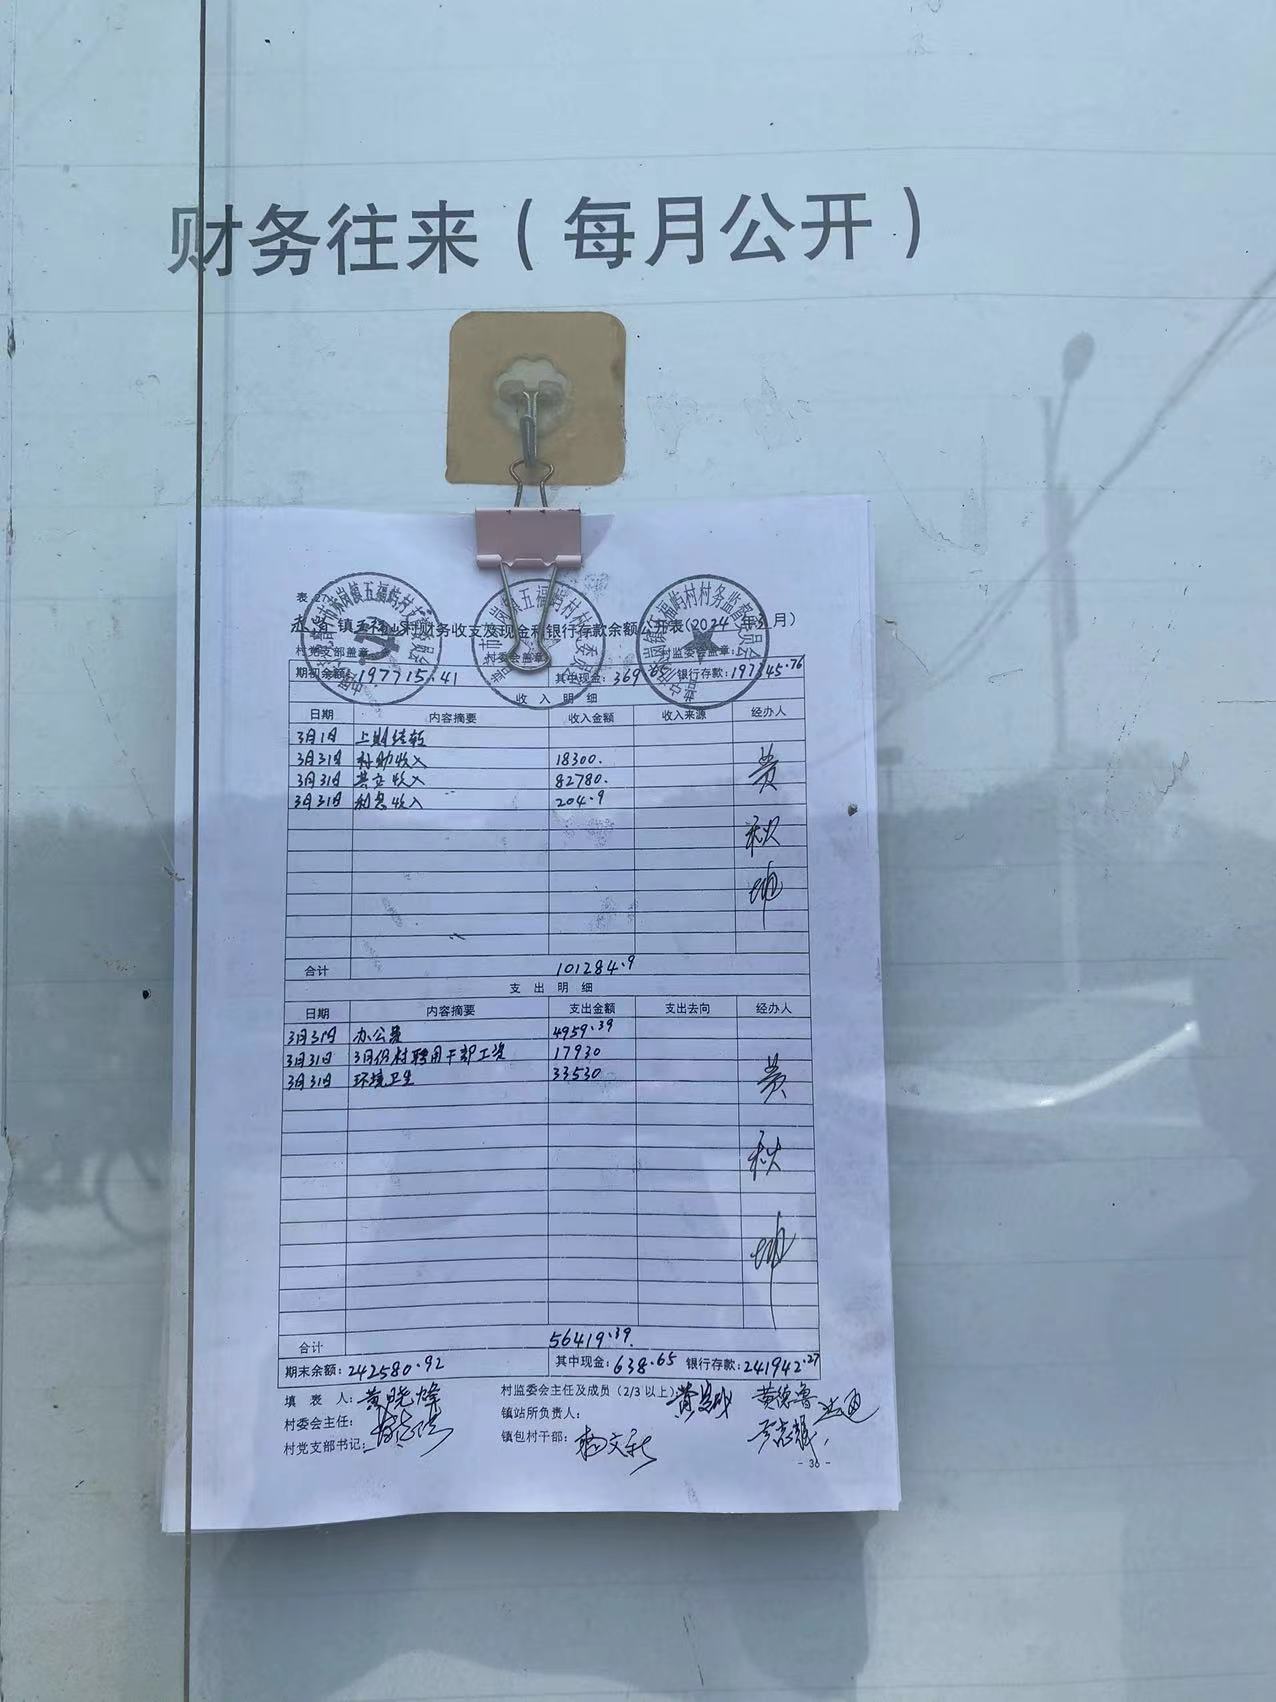 财务往来（每月公开）
表 27
赤岗镇五福屿村财务收支及现金和银行存款余额公开表(2024年3月)
村党支部盖章: 村委会盖章: 村监委会盖章:
期初余额:197715.41 其中现金:369.65 银行存款:197345.76
收 入 明 细
日期 内容摘要 收入金额 收入来源 经办人
3月1日 上期结转
3月31日 补助收入 18300.
3月31日 其他收入 82780.
3月31日 利息收入 204.9
黄秋坤
合计 101284.9
支 出 明 细
日期 内容摘要 支出金额 支出去向 经办人
3月31日 办公费 4959.39
3月31日 3月份村聘用干部工资 17930
3月31日 环境卫生 33530
黄秋坤
合计 56419.39.
期末余额:242580.92 其中现金:638.65 银行存款:241942.27
填 表 人: 黄晓烽 村监委会主任及成员（2/3以上） 黄德鲁
村委会主任: 镇站所负责人:
村党支部书记: 镇包村干部:
- 36 -